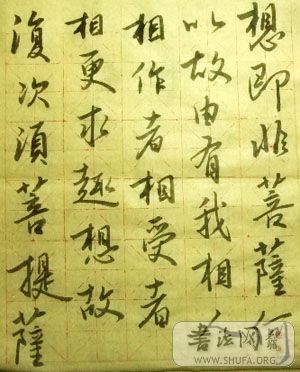 想即非菩萨何
以故由有我相人
相作者相受者
相更求趣想故
復次須菩提薩
書法网
WWW.SHUFA.ORG